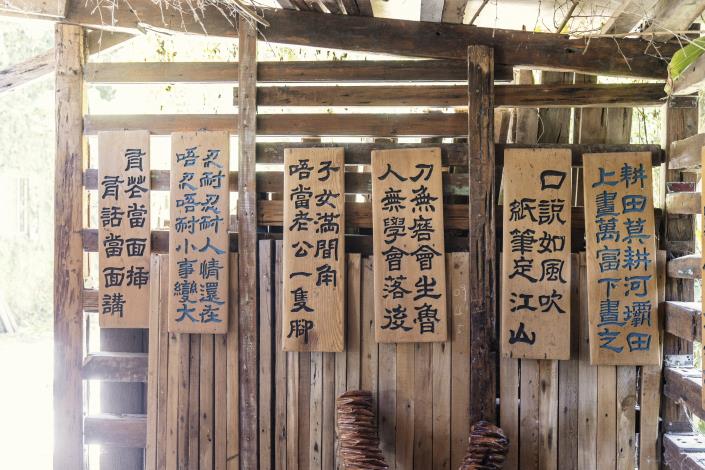 耕田莫耕河壩田
上晝萬富下晝之
口說如風吹
紙筆定江山
刀無磨會生魯
人無學會落後
子女滿間角
唔當老公一隻腳
忍耐忍耐人情還在
唔忍唔耐小事變大
有花當面插
有話當面講